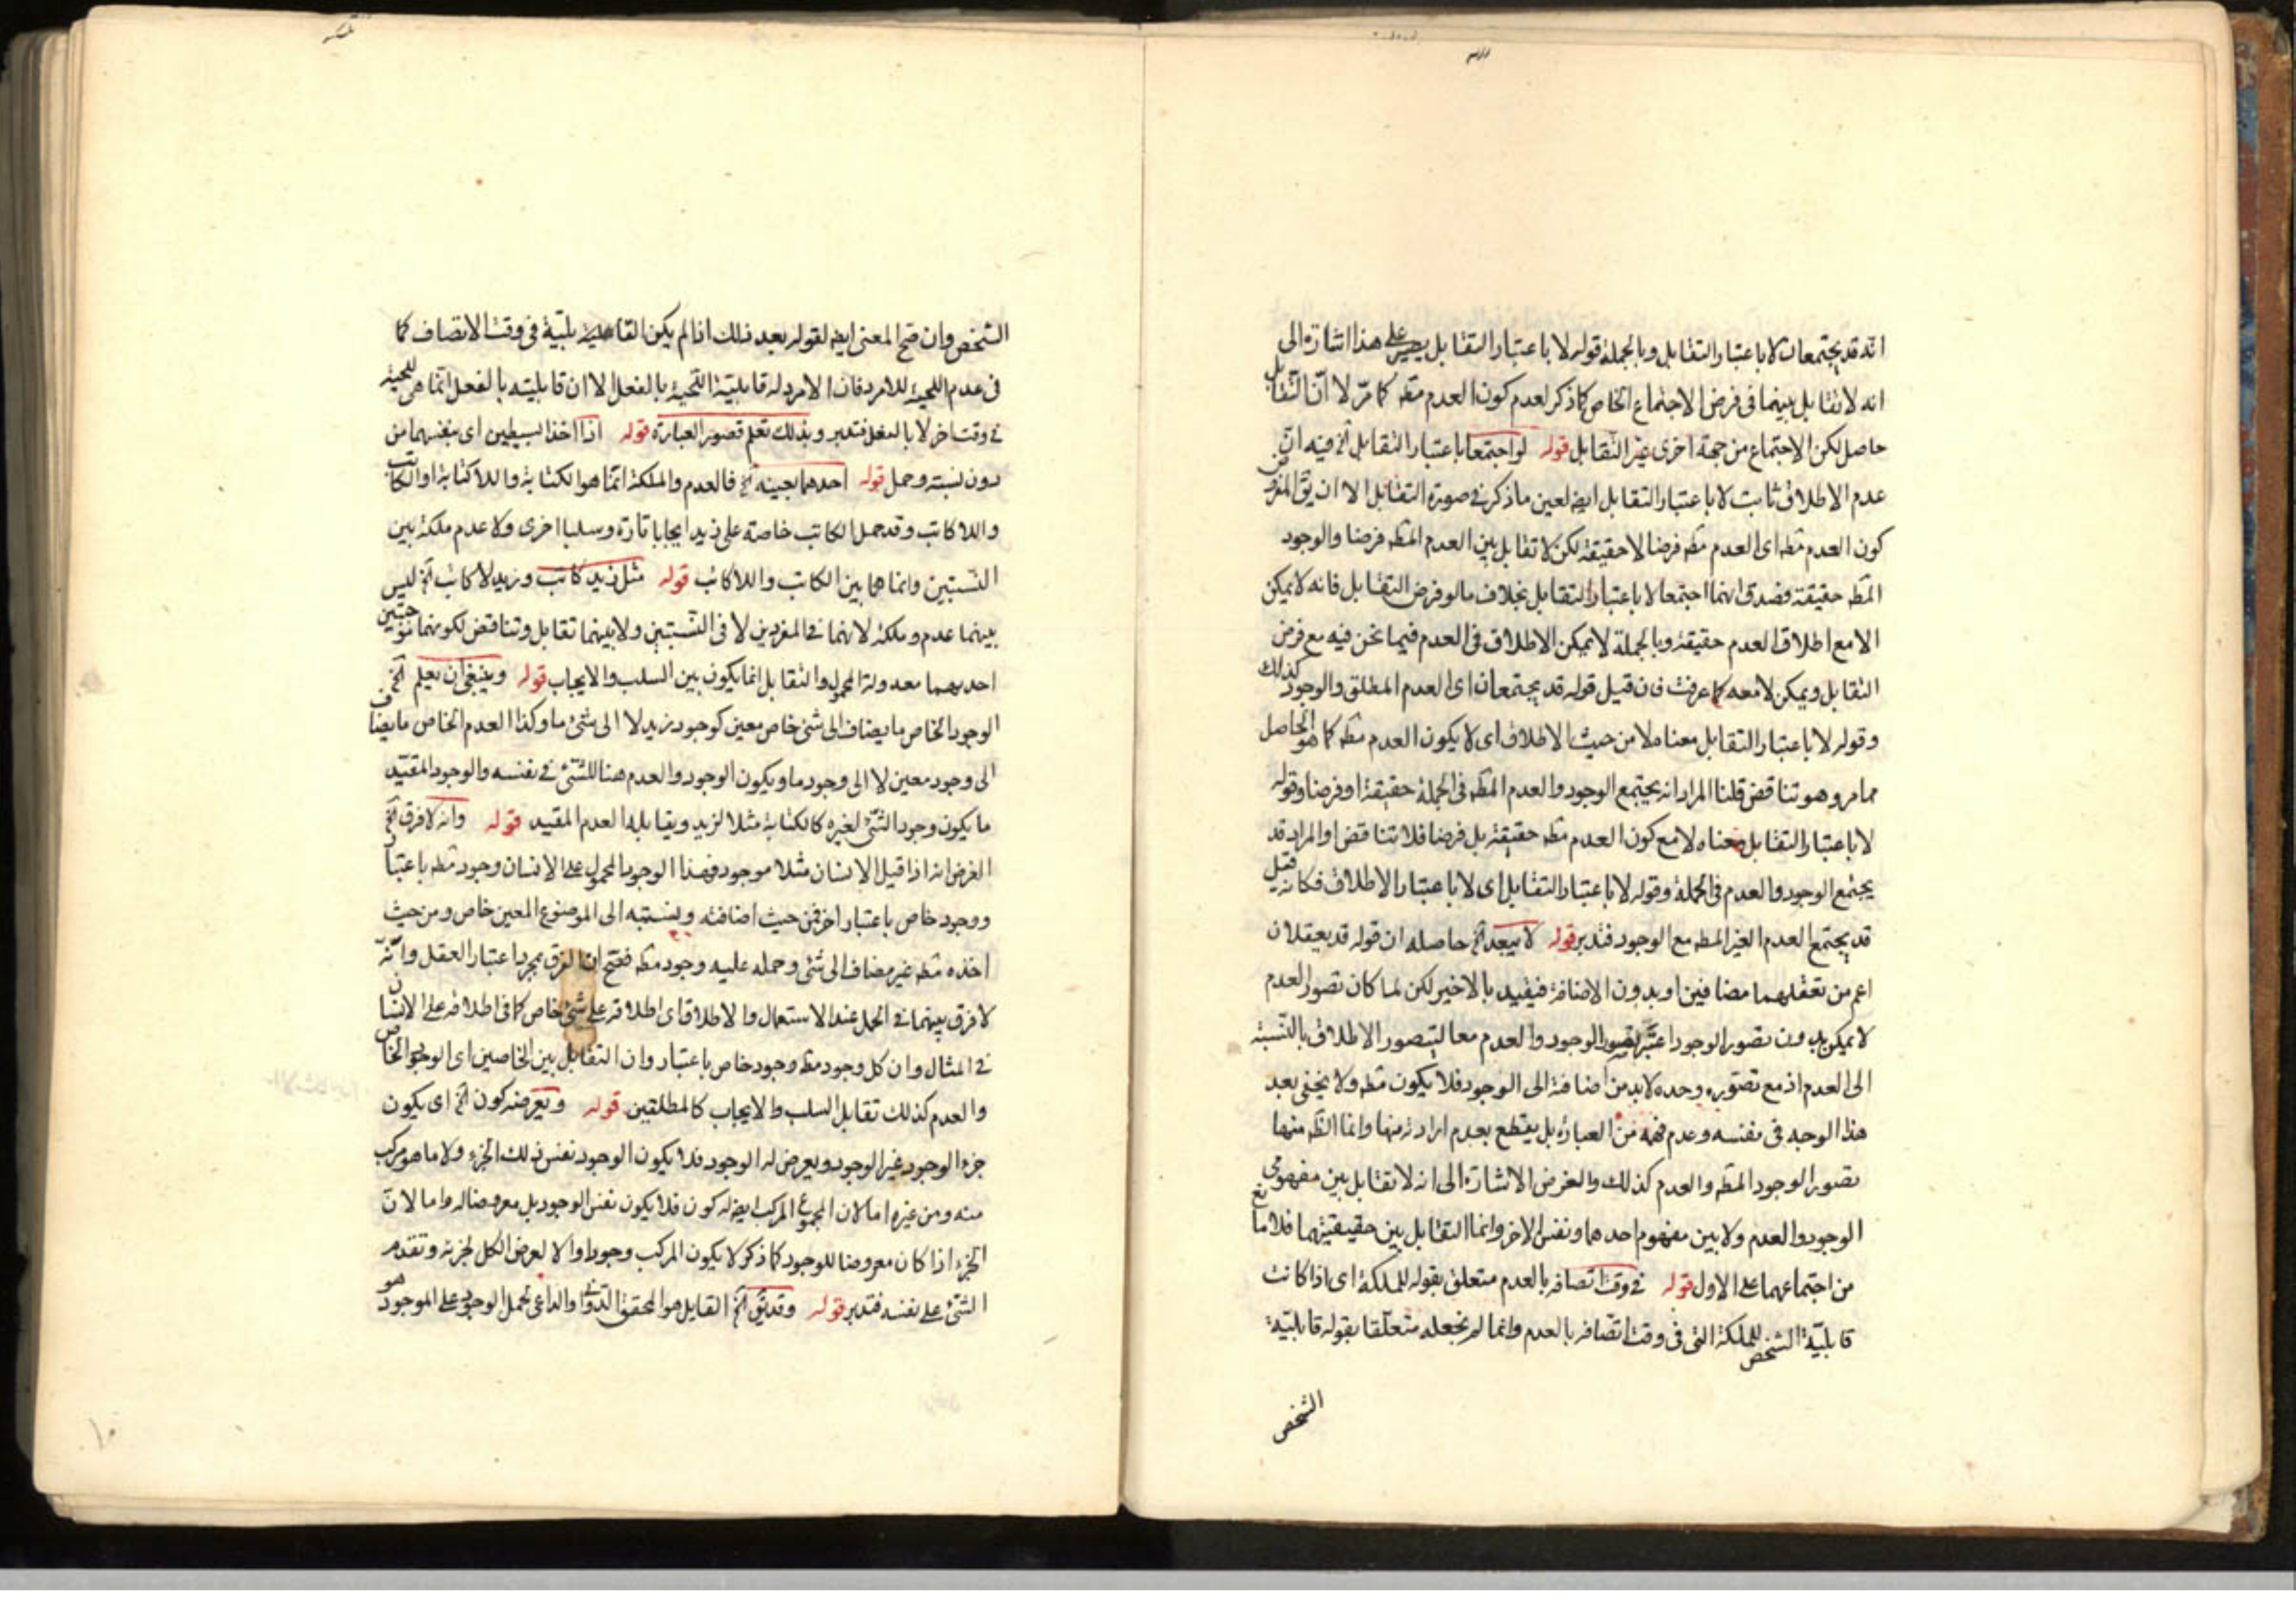 انه قد يجتمعان لا باعتبار التقابل وبالجملة قوله لا باعتبار التقابل على هذا اشارة الى
انه لا تقابل بينهما فى فرض الاجتماع الخاص كما ذكر لعدم كون العدم مطه كما مرّ لا انّ التقابل
حاصل لكن الاجتماع من جهة اخرى غير التقابل قوله لو اجتمعا باعتبار التقابل آه فيه انّ
عدم الاطلاق ثابت لا باعتبار التقابل ايضه لعين ما ذكر فى صورة التقابل الا ان يق المفروض
كون العدم مطه اى العدم مطه فرضا لا حقيقة لكن لا تقابل بين العدم المطه فرضا والوجود
المطه حقيقة فصدق انهما اجتمعا لا باعتبار التقابل بخلاف ما لو فرض التقابل فانه لا يمكن
الا مع اطلاق العدم حقيقة وبالجملة لا يمكن الاطلاق فى العدم فيما نحن فيه مع فرض
التقابل ويمكن لا معه كما عرفت فان قيل قوله قد يجتمعان اى العدم المطلق والوجود كذلك
وقوله لا باعتبار التقابل معناه لا من حيث الاطلاق اى لا يكون العدم مطه كما هو الحاصل
مما مر وهو تناقض قلنا المراد انه يجتمع الوجود والعدم المطه فى الجملة حقيقة او فرضا وقوله
لا باعتبار التقابل معناه لا مع كون العدم مطه حقيقة بل فرضا فلا تناقض او المراد قد
يجتمع الوجود والعدم فى الجملة وقوله لا باعتبار التقابل اى لا باعتبار الاطلاق فكانه قيل
قد يجتمع العدم الغير المطه مع الوجود فتدبر قوله لا يبعد آه حاصله ان قوله قد يعقلان
اعم من تعقلهما مضافين او بدون الاضافة فيفيد بالاخير لكن لما كان تصور العدم
لا يمكن بدون تصور الوجود اعتبر تصور الوجود والعدم معا ليتصور الاطلاق بالنسبة
الى العدم اذ مع تصوره وحده لا بد من اضافة الى الوجود فلا يكون مطه ولا يخفى بعد
هذا الوجه فى نفسه وعدم فهمه من العبارة بل يقطع بعدم ارادته منها وانما الظه منها
تصور الوجود المطه والعدم كذلك والغرض الاشارة الى انه لا تقابل بين مفهومى
الوجود والعدم ولا بين مفهوم احدهما ونفس الاخر وانما التقابل بين حقيقتيهما فلا مانع
من اجتماعهما على الاول قوله فى وقت اتصافه بالعدم متعلق بقوله للملكة اى اذا كانت
قابليّة الشخص للملكة التى فى وقت اتصافه بالعدم وانما لم نجعله متعلّقا بقوله قابليّة
الشخص
الشخص وان صح المعنى ايضه لقوله بعد ذلك اذا لم يكن القابلية فى وقت الاتصاف كما
فى عدم اللحية للامرد فان الامرد له قابلية اللحية بالفعل الا ان قابليته بالفعل انما هى للحية
فى وقت اخر لا بالفعل فتدبر وبذلك تعلم قصور العبارة قوله اذا اخذ البسيطين اى بنفسهما من
دون نسبة وحمل قوله احدهما بعينه آه فالعدم والملكة انما هو الكتابة واللا كتابة او الكاتب
واللا كاتب وقد حمل الكاتب خاصة على زيد ايجابا تارة وسلبا اخرى ولا عدم ملكة بين
النسبتين وانما هما بين الكاتب واللا كاتب قوله مثل زيد كاتب وزيد لا كاتب آه ليس
بينهما عدم وملكة لانهما فى المفردين لا فى النسبتين ولا بينهما تقابل وتناقض لكونهما موجبتين
احديهما معدولة المحمول والتقابل انما يكون بين السلب والايجاب قوله وينبغى ان يعلم آه
الوجود الخاص ما يضاف الى شئ خاص معين كوجود زيد لا الى شئ ما وكذا العدم الخاص ما يضاف
الى وجود معين لا الى وجود ما ويكون الوجود والعدم هنا للشئ فى نفسه والوجود المقيّد
ما يكون وجود الشئ لغيره كالكتابة مثلا لزيد ويقابله العدم المقيد قوله وانه لا فرق آه
الغرض انه اذا قيل الانسان مثلا موجود فهذا الوجود المحمول على الانسان وجود مطه باعتبار
ووجود خاص باعتبار اخر فمن حيث اضافته ونسبته الى الموضوع المعين خاص ومن حيث
اخذه مطه غير مضاف الى شئ وحمله عليه وجود مطه فصح ان الفرق بمجرد اعتبار العقل وانّه
لا فرق بينهما فى الحمل عند الاستعمال والاطلاق اى اطلاقه على شئ خاص كما فى اطلاقه على الانسان
فى المثال وان كل وجود مطه وجود خاص باعتبار وان التقابل بين الخاصين اى الوجود الخاص
والعدم كذلك تقابل السلب والايجاب كالمطلقين قوله وتعرضه كون آه اى يكون
جزء الوجود غير الوجود ويعرض له الوجود فلا يكون الوجود نفس ذلك الجزء ولا ما هو مركب
منه ومن غيره اما لان المجموع المركب ايضه له كون فلا يكون نفس الوجود بل معروضا له واما لانّ
الجزء اذا كان معروضا للوجود كما ذكر لا يكون المركب وجودا والا لعرض الكل لجزئه وتقدم
الشئ على نفسه فتدبر قوله وقد يق آه القايل هو المحقق الدوانى والداعى لحمل الوجود على الموجود هو